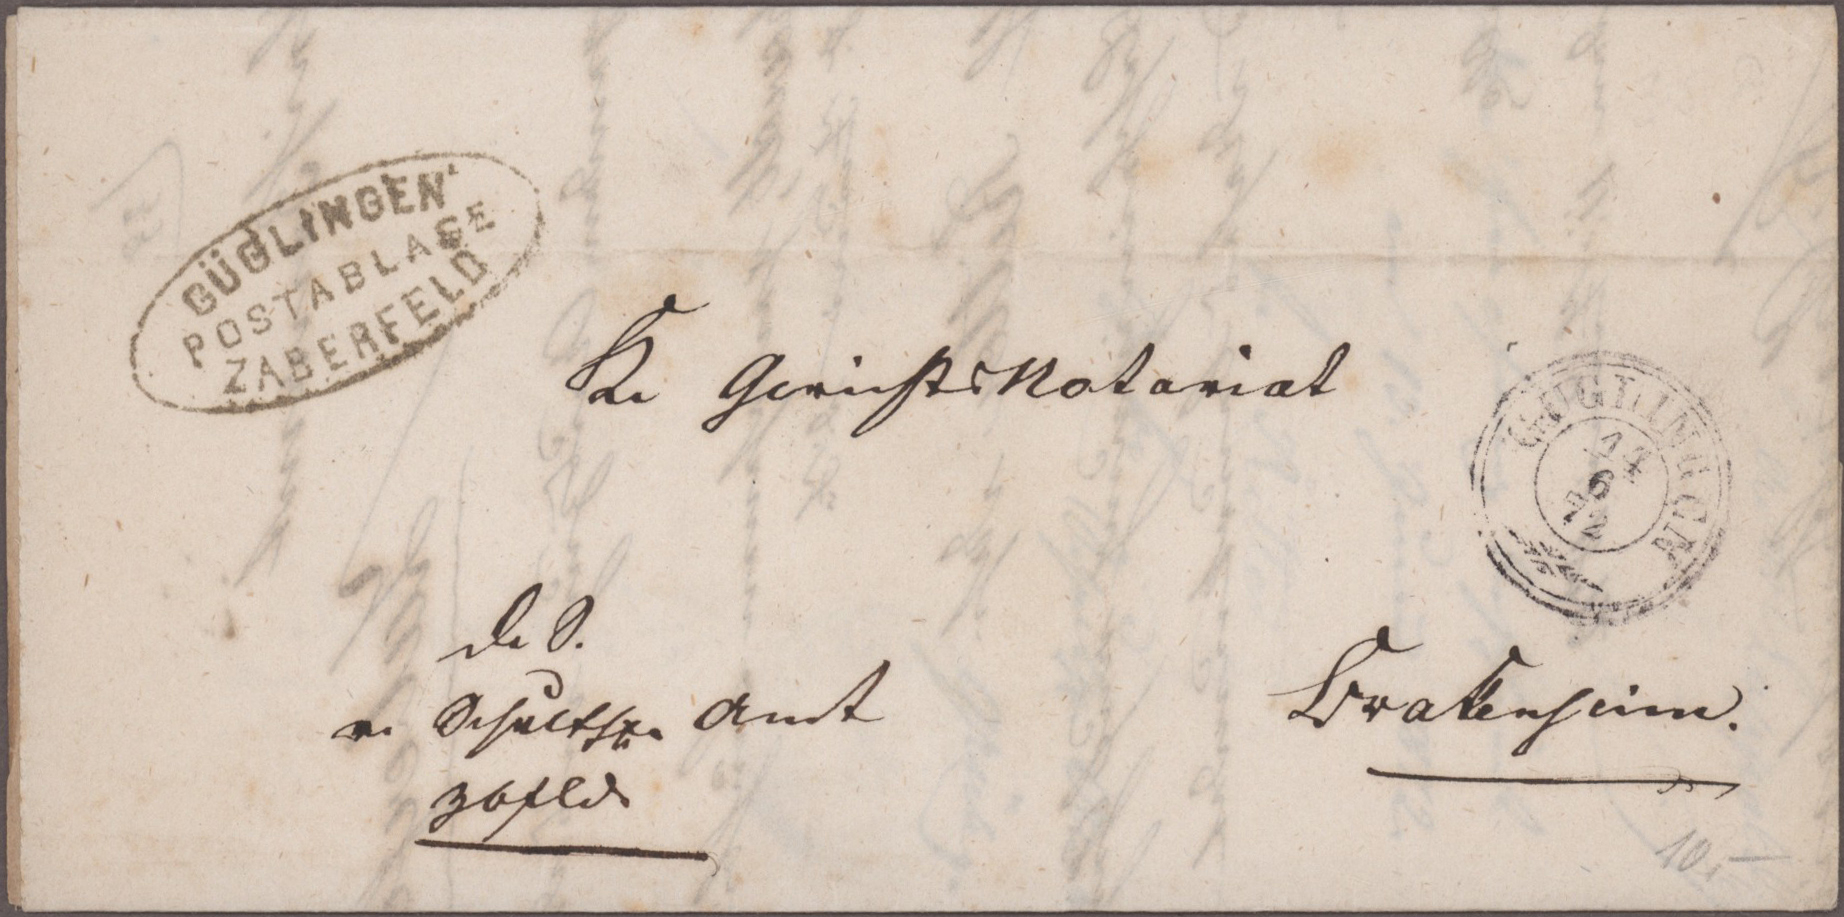 GÜGLINGEN
POSTABLAGE
ZABERFELD
K. Gerichts Notariat
GÜGLINGEN
14
6
72
d. S.
v. Schulthn. Amt
Zbfld
Brakenheim.
10,-